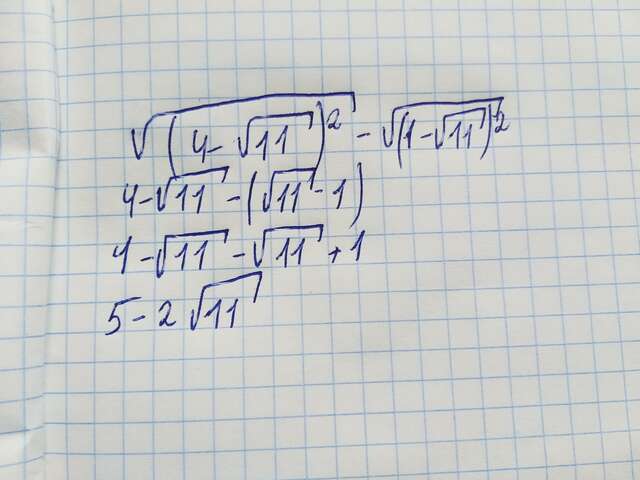 √(4-√11)² - √(1-√11)²
4-√11 - (√11 - 1)
4-√11 - √11 + 1
5-2√11